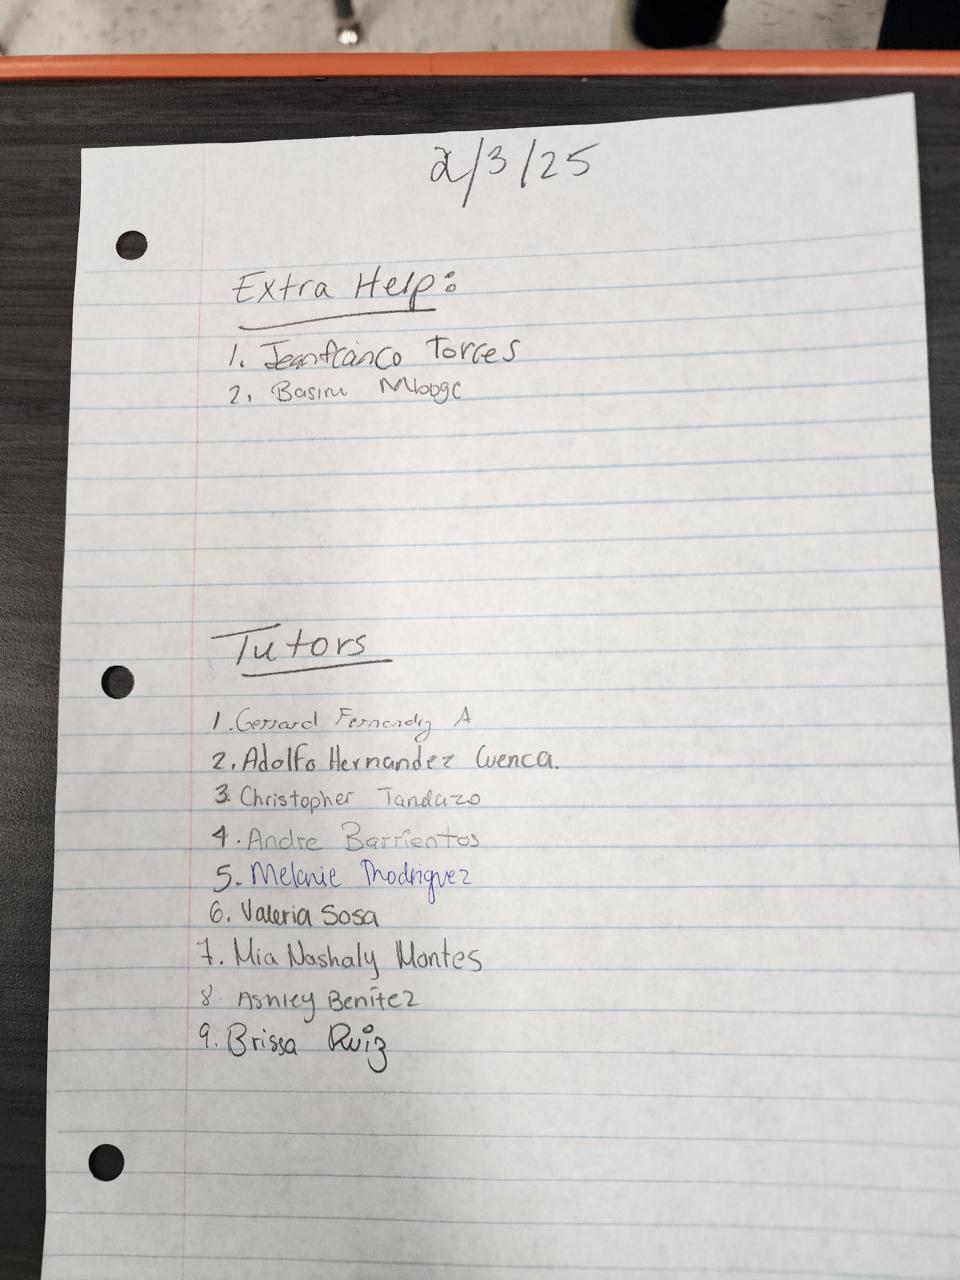 2/3/25
Extra Help:
1. Jeanfranco Torres
2. Basiru
Tutors
1. Gerrard A.
2. Adolfo Hernandez Cuenca.
3. Christopher Tandazo
4. Andre Barrientos
5. Melanie Rodriguez
6. Valeria Sosa
7. Mia Nashaly Montes
8. Ashley Benitez
9. Brissa Ruiz